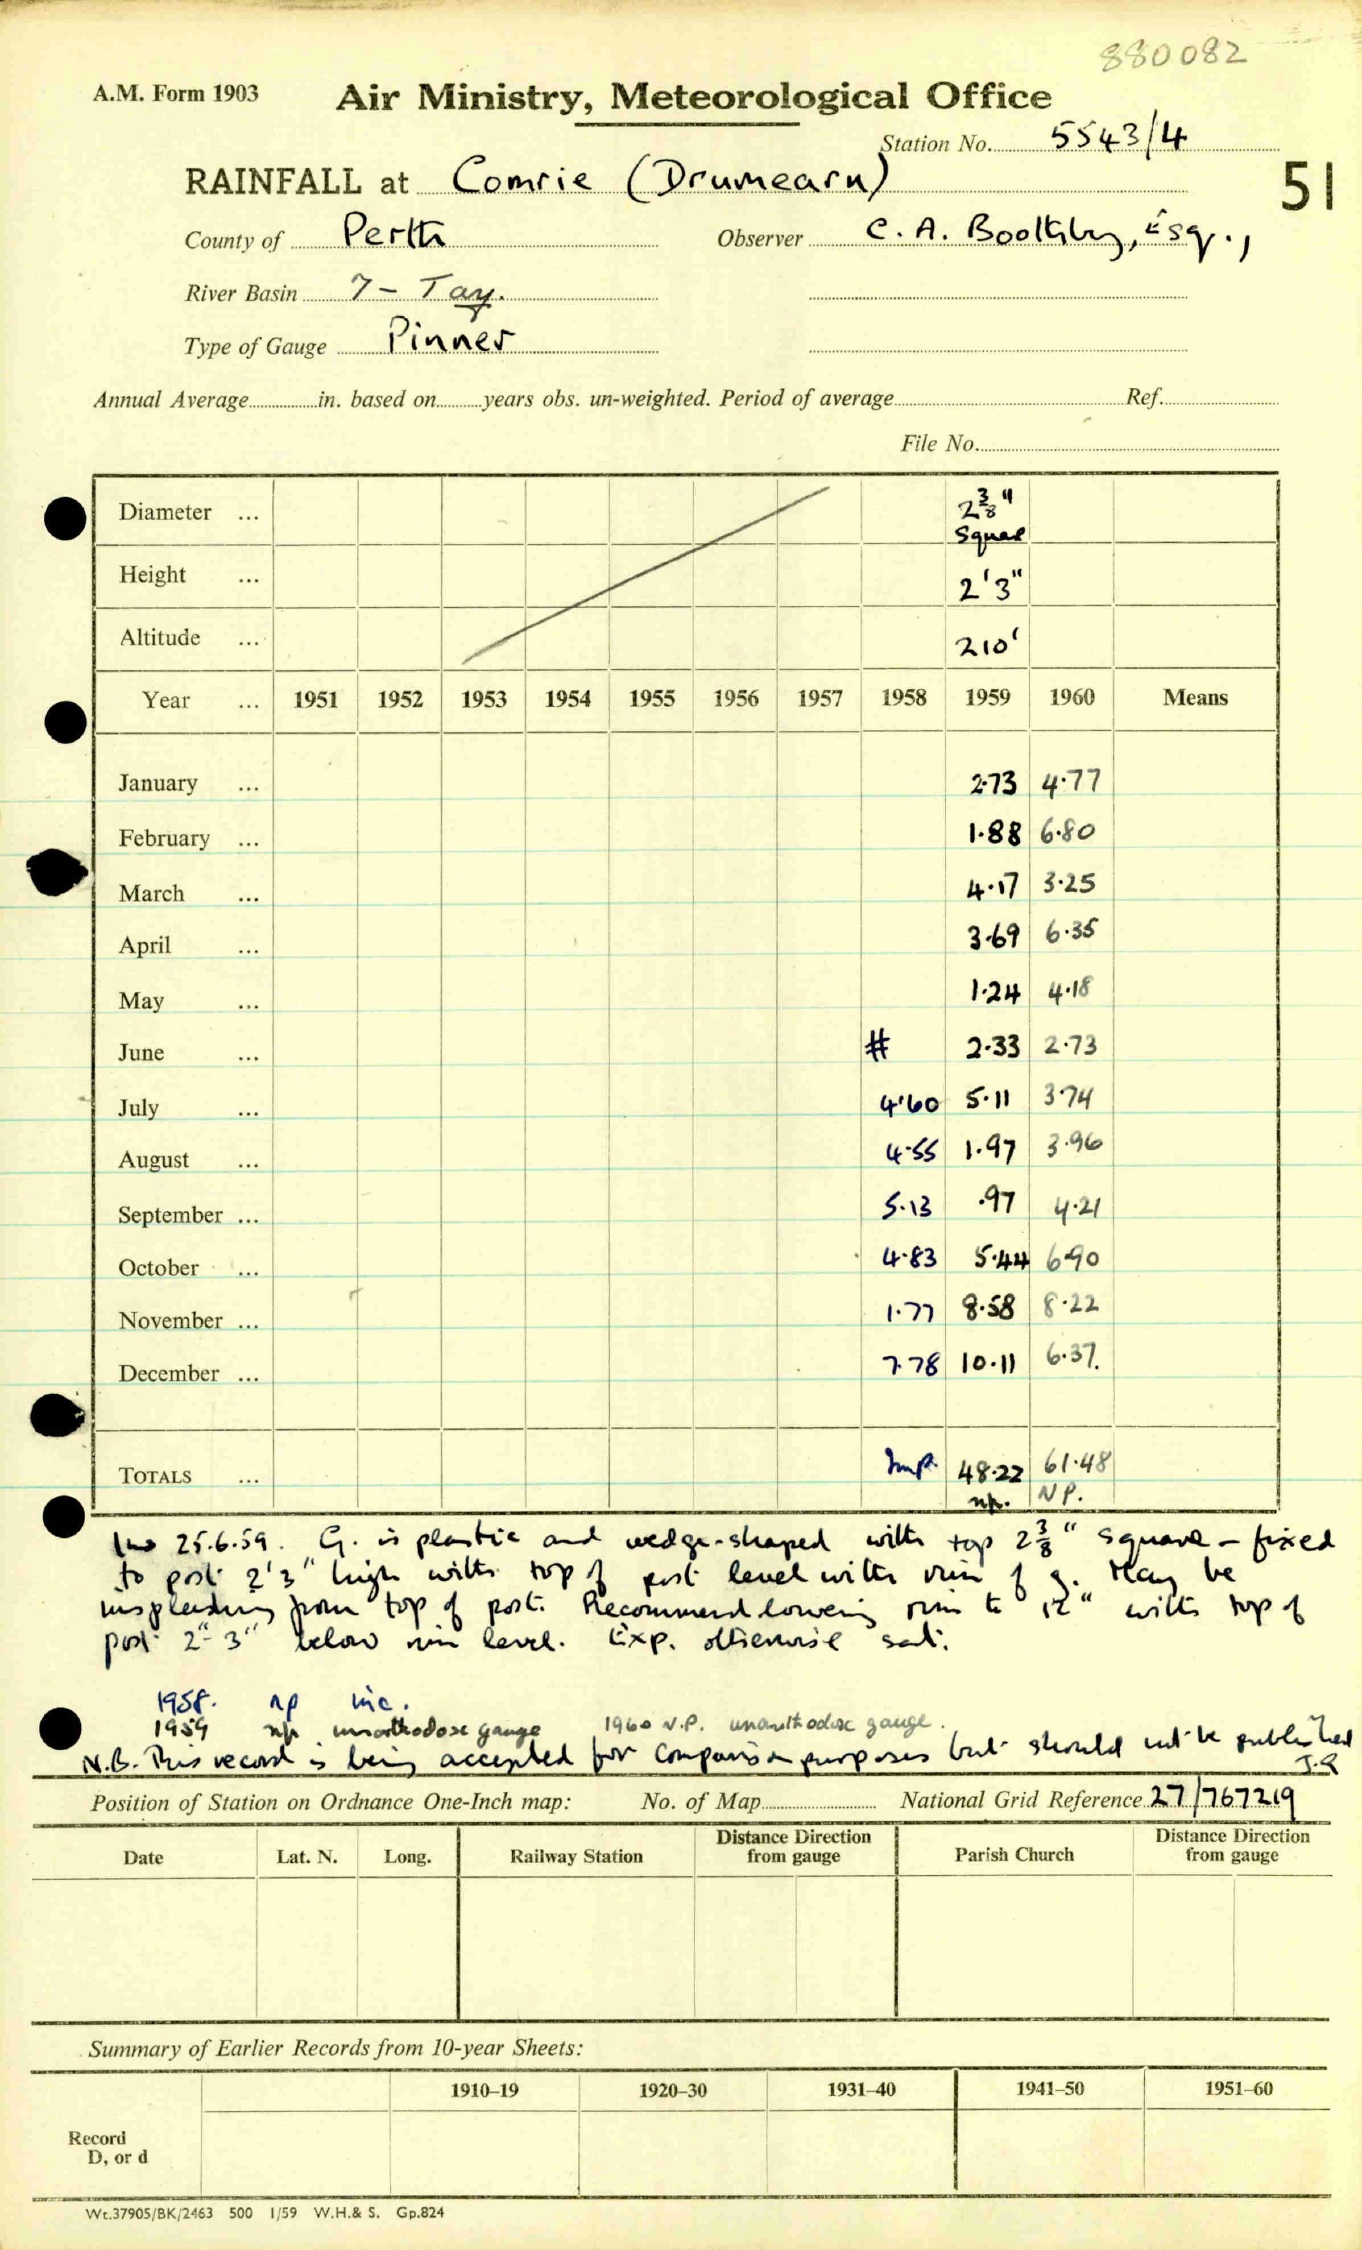 880082
A.M. Form 1903 Air Ministry, Meteorological Office
Station No. 5543/4
RAINFALL at Comrie (Drumearn) 51
County of Perth Observer C. A. Boothby, Esq.,
River Basin 7 - Tay.
Type of Gauge Pinner
Annual Average in. based on years obs. un-weighted. Period of average Ref.
File No.
Diameter ... 2 3/8" square
Height ... 2'3"
Altitude ... 210'
Year ... 1951 1952 1953 1954 1955 1956 1957 1958 1959 1960 Means
January ... 2.73 4.77
February ... 1.88 6.80
March ... 4.17 3.25
April ... 3.69 6.35
May ... 1.24 4.18
June ... # 2.33 2.73
July ... 4.60 5.11 3.74
August ... 4.55 1.97 3.96
September ... 5.13 .97 4.21
October ... 4.83 5.44 6.90
November ... 1.77 8.58 8.22
December ... 7.78 10.11 6.37.
TOTALS ... Imp. 48.22 61.48
np. NP.
25.6.59. G. is plastic and wedge-shaped with top 2 3/8" square - fixed
to post 2'3" high with top of post level with rim of g. May be
insplashing from top of post. Recommend lowering rim to 12" with top of
post 2"-3" below rim level. Exp. otherwise sat.
1958. np inc.
1959 np unorthodox gauge 1960 N.P. unorthodox gauge.
N.B. This record is being accepted for comparison purposes but should not be published
Position of Station on Ordnance One-Inch map: No. of Map National Grid Reference 27/767219
Date Lat. N. Long. Railway Station Distance Direction from gauge Parish Church Distance Direction from gauge
Summary of Earlier Records from 10-year Sheets:
1910–19 1920–30 1931–40 1941–50 1951–60
Record
D, or d
Wt.37905/BK/2463 500 1/59 W.H.& S. Gp.824